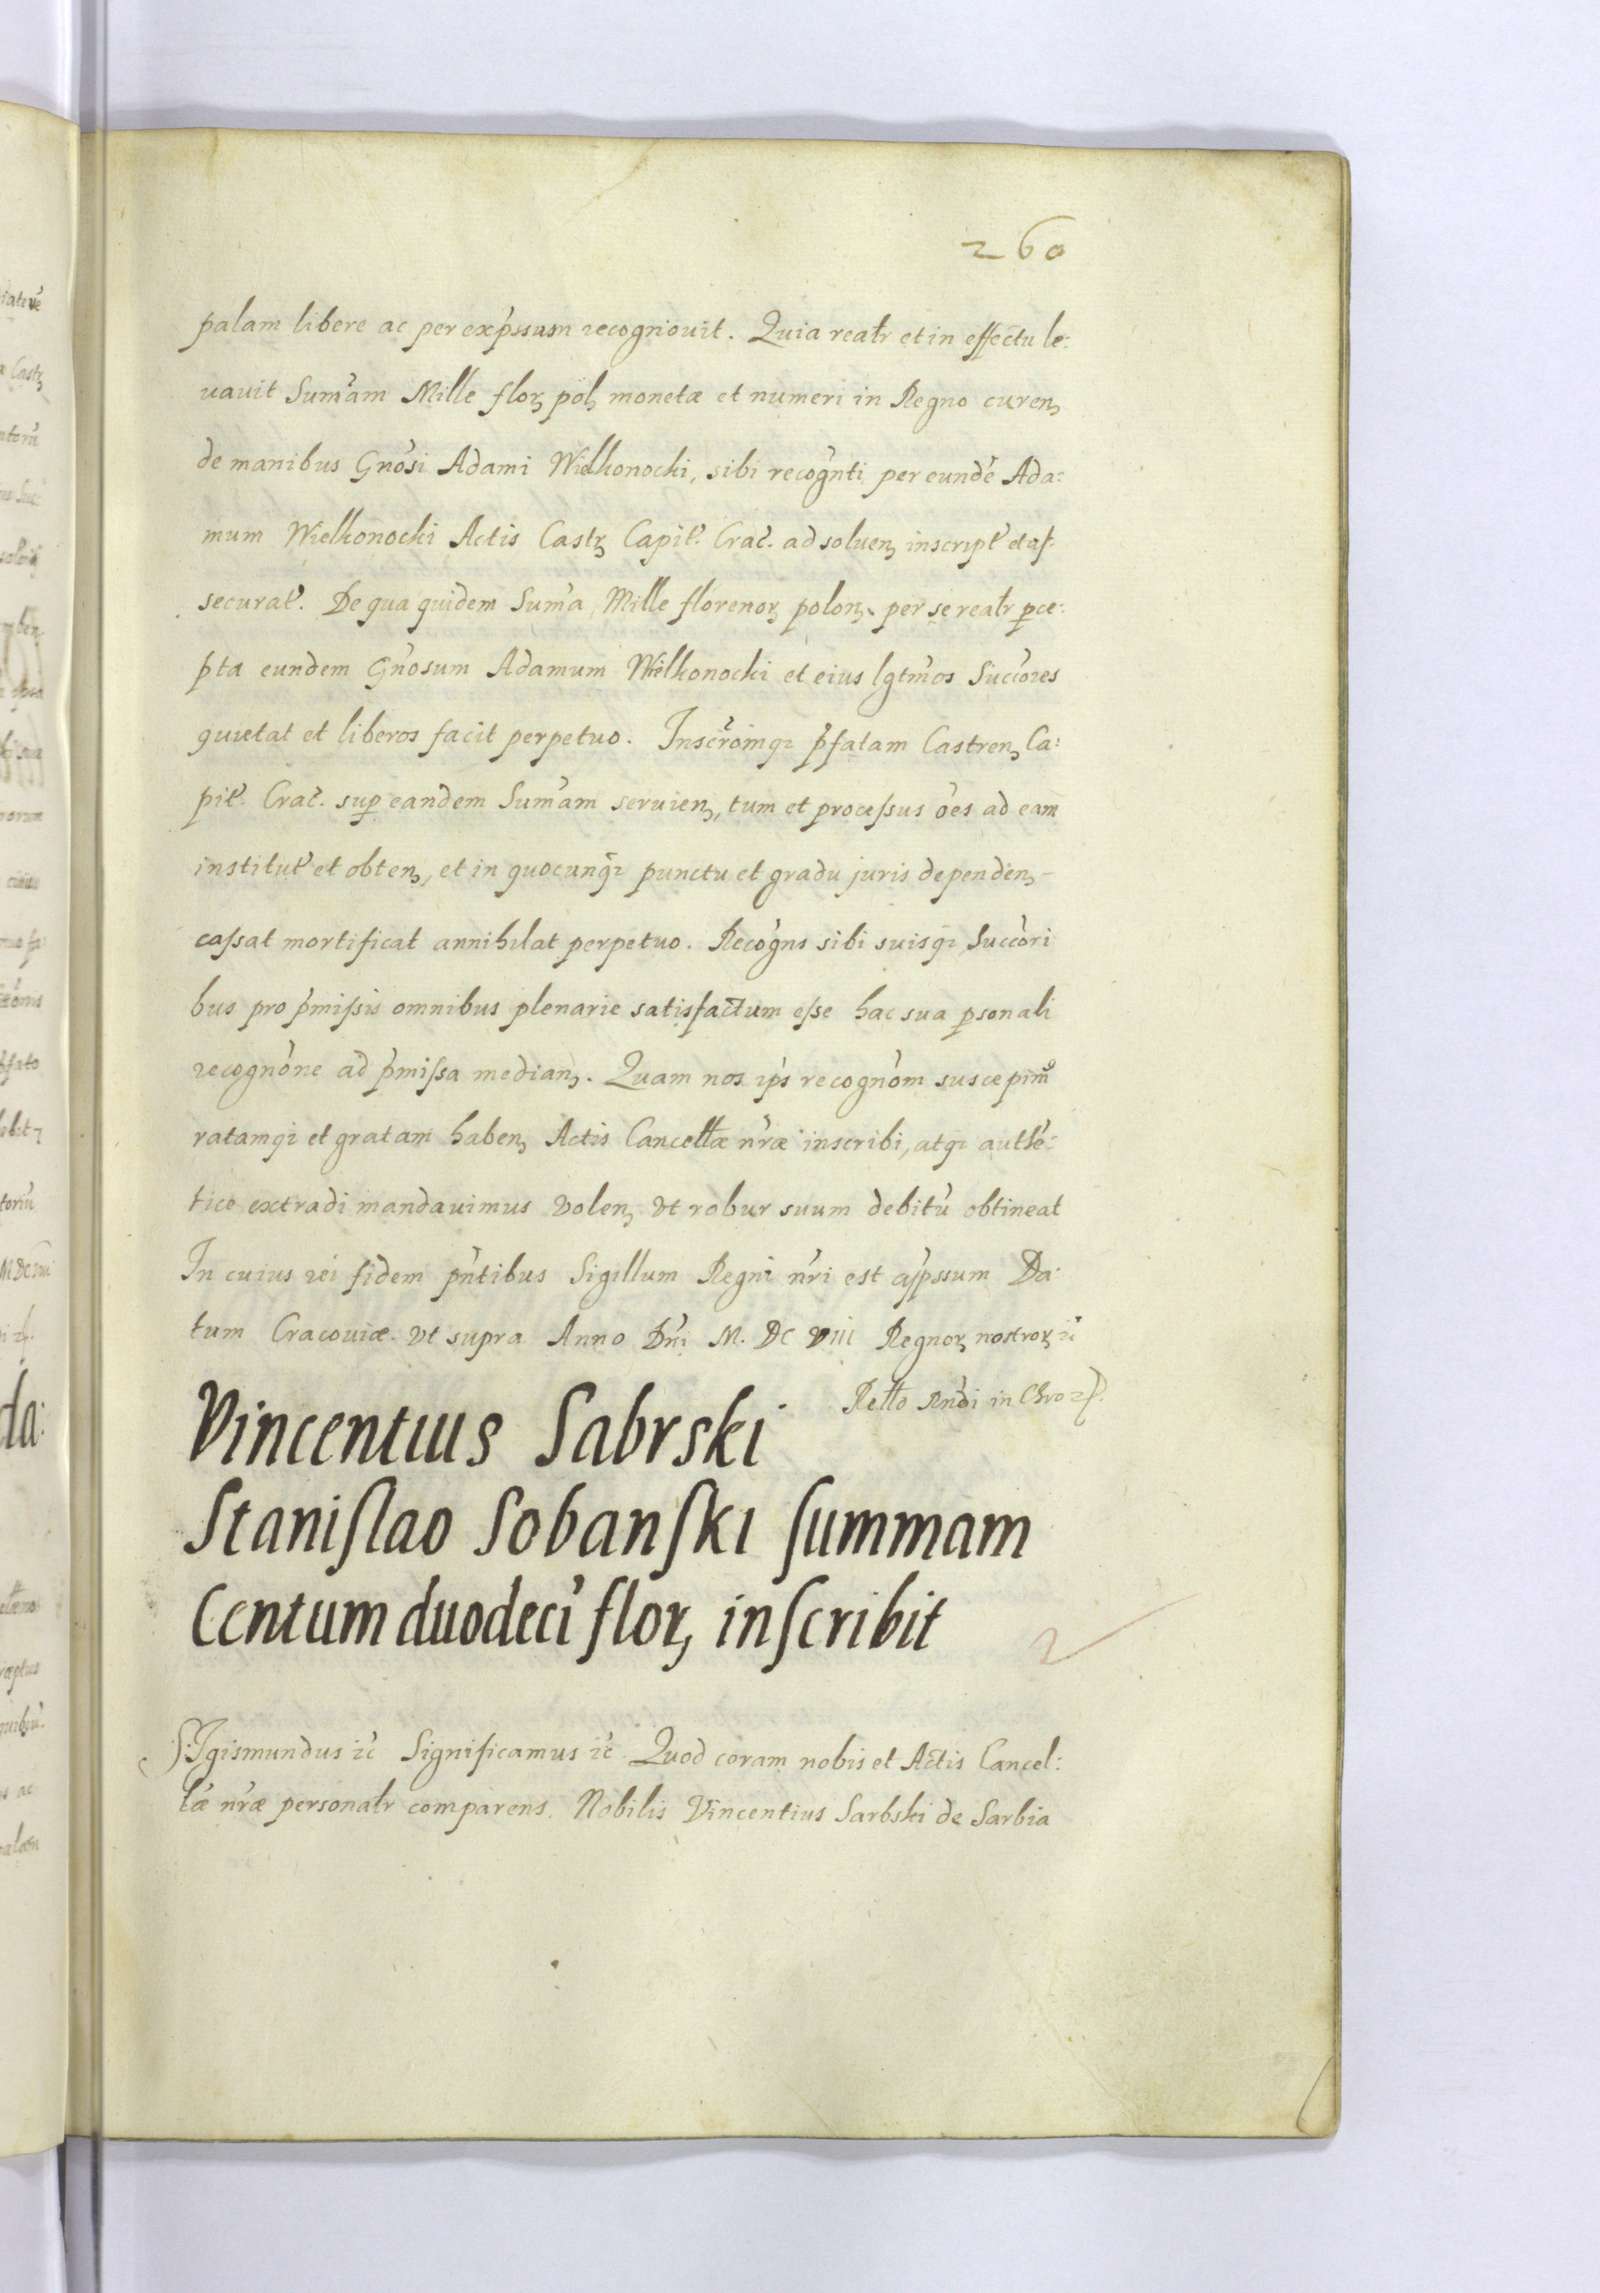 260
palam libere ac per exp̃ssum recognouit. Quia realr et in effectu le:
uauit Sum̃am Mille flor̨ pol̨ monetæ et numeri in Regno curen̨
de manibus Gnõsi Adami Wielkonocki, sibi recogñti per eundẽ Ada:
mum Wielkonocki Actis Castr̨ Capit̃. Crac̃. ad soluen̨ inscript̃ et aſ:
securat̃. De qua quidem Sum̃a Mille florenor̨ polon̨ per se realr ꝑce:
pta eundem Gñosum Adamum Wielkonocki et eius lgtm̃os Succ̃ores
quietat et liberos facit perpetuo. Inscr̃omqꝫ p̃fatam Castren̨ Ca:
pit̃. Crac̃. suꝑ eandem Sum̃am seruien̨, tum et proceſsus ões ad eam
institut̃ et obten̨, et in quocunqꝫ punctu et gradu juris dependen̨
caſsat mortificat annihilat perpetuo. Recogñs sibi suisqꝫ Succõri
bus pro p̃miſsis omnibus plenarie satisfactum eſse hac sua ꝑsonali
recognõne ad p̃miſsa median̨. Quam nos ip̃s recognõm suscepim9
ratamqꝫ et gratam haben̨ Actis Cancellæ nr̃æ inscribi, atqꝫ authẽ:
tice extradi mandauimus volen̨ vt robur suum debitũ obtineat
In cuius rei fidem pñtibus Sigillum Regni nr̃i est app̃ssum Da:
tum Cracouiæ vt supra Anno Dñi M. DC VIII Regnor̨ nostror̨ ꝛc̃
Rello Rñdi in Chro ꝛꝭ.
Vincentius Sabrski
Staniſlao Sobanſki ſummam
Centum duodecĩ flor̨ inſcribit
2
SIgismundus ꝛc̃ Significamus ꝛc̃ Quod coram nobis et Actis Cancel:
læ nr̃æ personalr comparens. Nobilis Vincentius Sarbski de Sarbia